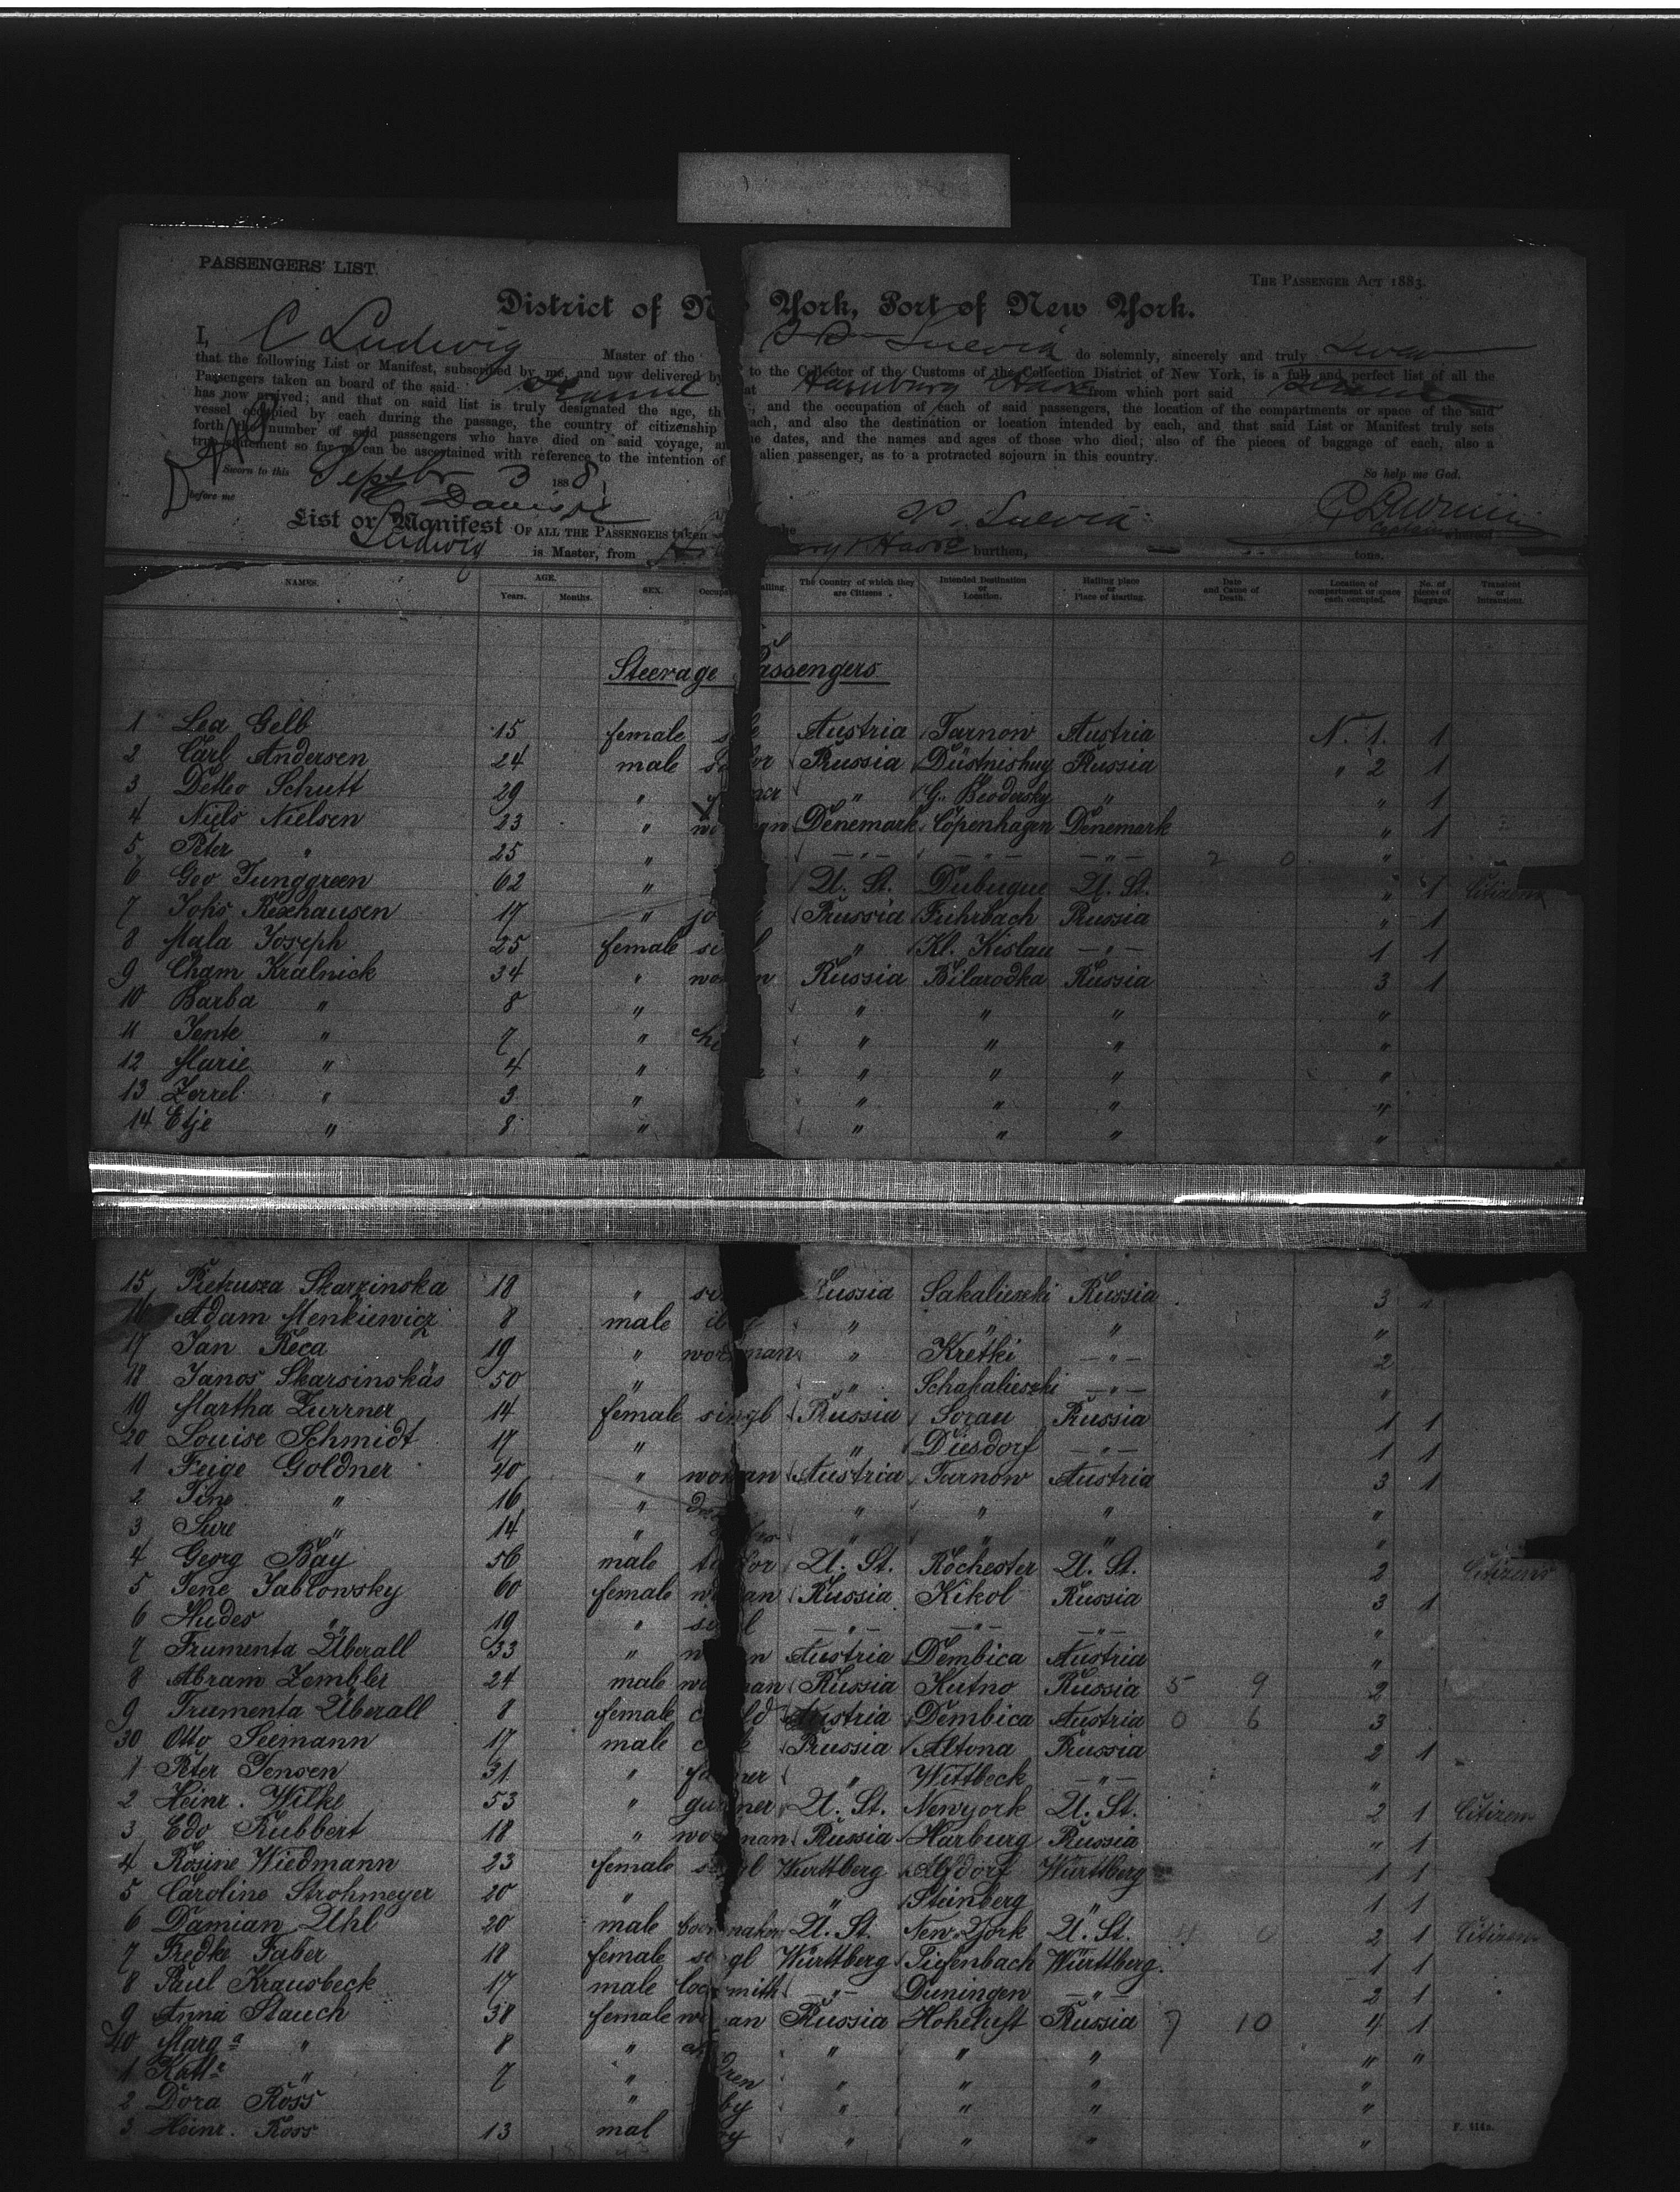 PASSENGERS' LIST.
THE PASSENGER ACT 1883.
District of N York, Port of New York.
I, C Ludwig Master of the S S Suevia do solemnly, sincerely and truly swear
that the following List or Manifest, subscribed by me, and now delivered by to the Collector of the Customs of the Collection District of New York, is a full and perfect list of all the
Passengers taken on board of the said at Hamburg Havre from which port said
has now arrived; and that on said list is truly designated the age, th , and the occupation of each of said passengers, the location of the compartments or space of the said
vessel occupied by each during the passage, the country of citizenship each, and also the destination or location intended by each, and that said List or Manifest truly sets
forth the number of said passengers who have died on said voyage, an he dates, and the names and ages of those who died; also of the pieces of baggage of each, also a
true statement so far as can be ascertained with reference to the intention of alien passenger, as to a protracted sojourn in this country.
So help me God.
Sworn to this Septbr 3 1888
before me
List or Manifest OF ALL THE PASSENGERS taken the Suevia whereof
Ludwig is Master, from Havre burthen, tons.
NAMES. AGE. Years. Months. SEX. Occupa alling. The Country of which they are Citizens. Intended Destination or Location. Hailing place or Place of starting. Date and Cause of Death. Location of compartment or space each occupied. No. of pieces of Baggage. Transient or Intransient.
Steerage Passengers
1 Lea Gelb 15 female Austria Tarnow Austria N. 1. 1
2 Carl Andersen 24 male Prussia Prussia " 2 1
3 Detlev Schutt 29 " " " " 1
4 Niels Nielsen 23 " Denemark Copenhagen Denemark " 1
5 Peter " 25 " —"— —"— —"— 2 0 "
6 Geo Junggreen 62 " U. St. Dubuque U. St. " 1 Citizen
7 Johs Rexhausen 17 " Prussia Fuhrbach Prussia " 1
8 Mala Joseph 25 female " Kl. Kislau —"— 1 1
9 Cham Kralnick 34 " Russia Bilarodka Russia 3 1
10 Barba " 8 " " " " "
11 Jente " 7 " " " " "
12 Marie " 4 " " " " "
13 Zerrel " 3 " " " " "
14 Etje " 8 " " " " "
15 Pietrusza Skarzinska 18 " ussia Sakalieszki Russia 3
16 Adam Menkiewicz 8 male " " " "
17 Jan Reca 19 " wor man " Kretki —"— 2
18 Janos Skarsinskas 50 " " Schakalieszki —"— "
19 Martha Zurrner 14 female singl Prussia Sorau Prussia 1 1
20 Louise Schmidt 17 " " Diesdorf —"— 1 1
1 Feige Goldner 40 " woman Austria Tarnow Austria 3 1
2 Tine " 16 " " " " "
3 Sure " 14 " " " " "
4 Georg Bay 56 male U. St. Rochester U. St. 2 Citizens
5 Jene Jablowsky 60 female Russia Kikol Russia 3 1
6 Hudes " 19 " —"— —"— —"— "
7 Frumenta Uberall 33 " Austria Dembica Austria "
8 Abram Zembler 24 male Russia Kutno Russia 5 9 2
9 Frumenta Uberall 8 female Austria Dembica Austria 0 6 3
30 Otto Seemann 17 male Prussia Altona Prussia 2 1
1 Peter Jensen 31 " " Wittbeck —"— "
2 Heinr. Wilke 53 " U. St. Newyork U. St. 2 1 Citizen
3 Edo Kubbert 18 " Prussia Harburg Prussia " 1
4 Rosine Wiedmann 23 female Württberg Alfdorf Württberg 1 1
5 Caroline Strohmeyer 20 " " Steinberg " 1 1
6 Damian Uhl 20 male U. St. New York U. St. 4 0 2 1 Citizen
7 Fredke Faber 18 female Württberg Tiefenbach Württberg. 1 1
8 Paul Krausbeck 17 male —"— Duningen —"— 2 1
9 Anna Stauch 38 female Prussia Hoheluft Prussia 7 10 4 1
40 Marga " 8 " " " " " "
1 Kath " 7 " " " " "
2 Dora Ross " " " " "
3 Heinr. Ross 13 mal " " " "
F. 414a.